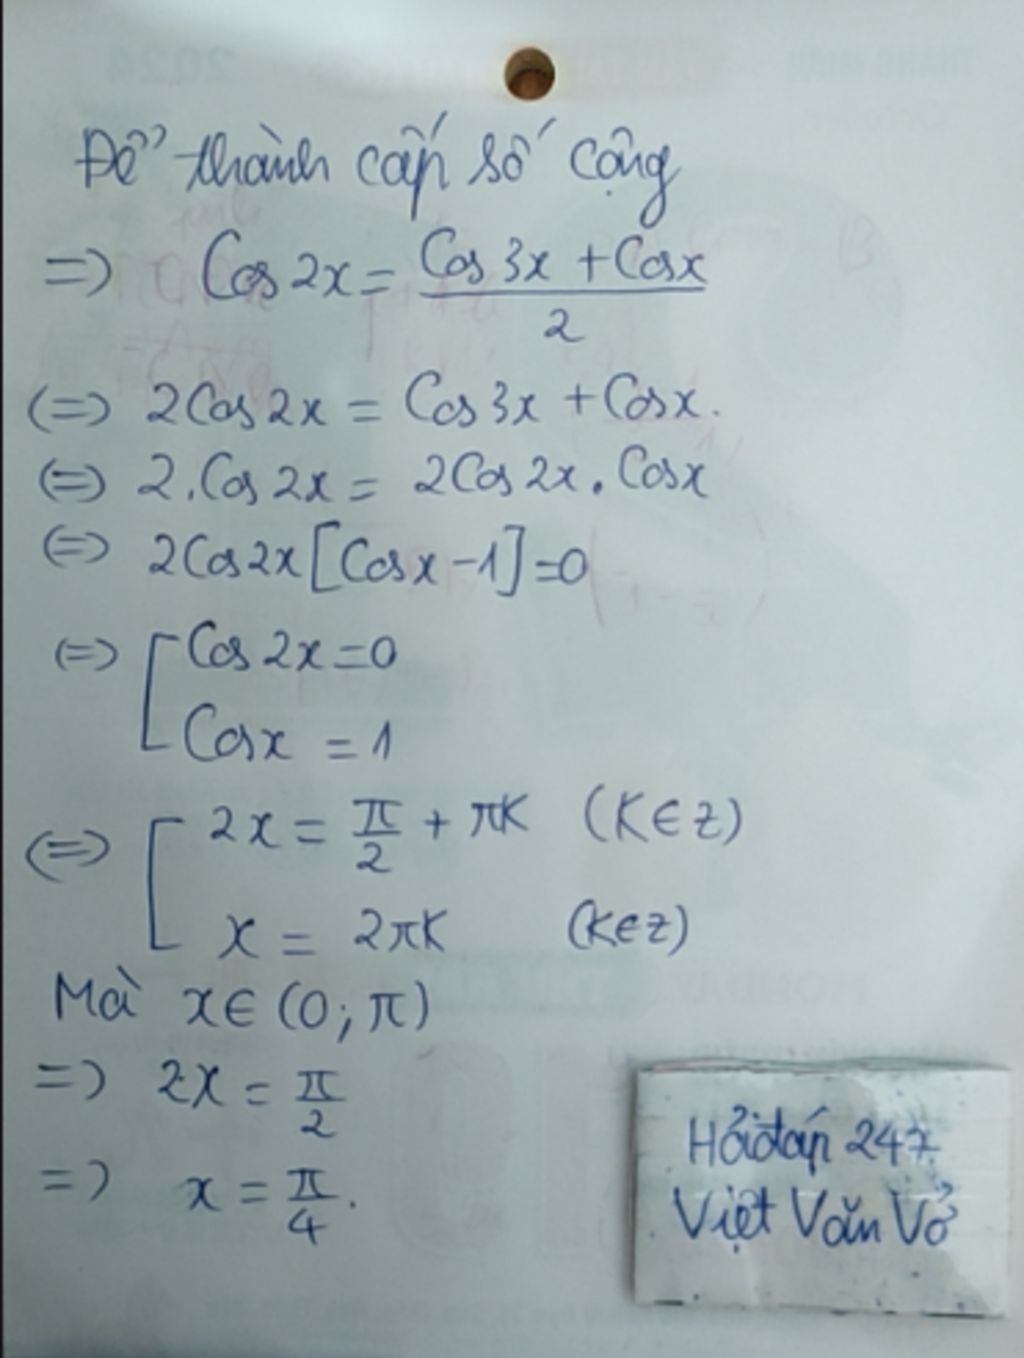 Để thành cấp số cộng
=> Cos 2x = (Cos 3x + Cosx)/2
(=) 2Cos 2x = Cos 3x + Cosx.
(=) 2.Cos 2x = 2Cos 2x . Cosx
(=) 2Cos2x [Cosx - 1] = 0
(=) [ Cos 2x = 0
Cosx = 1
(=) [ 2x = π/2 + πK (K ∈ Z)
x = 2πK (K ∈ Z)
Mà x ∈ (0; π)
=> 2x = π/2
=> x = π/4.
Hỏi đáp 247
Việt Văn Vở